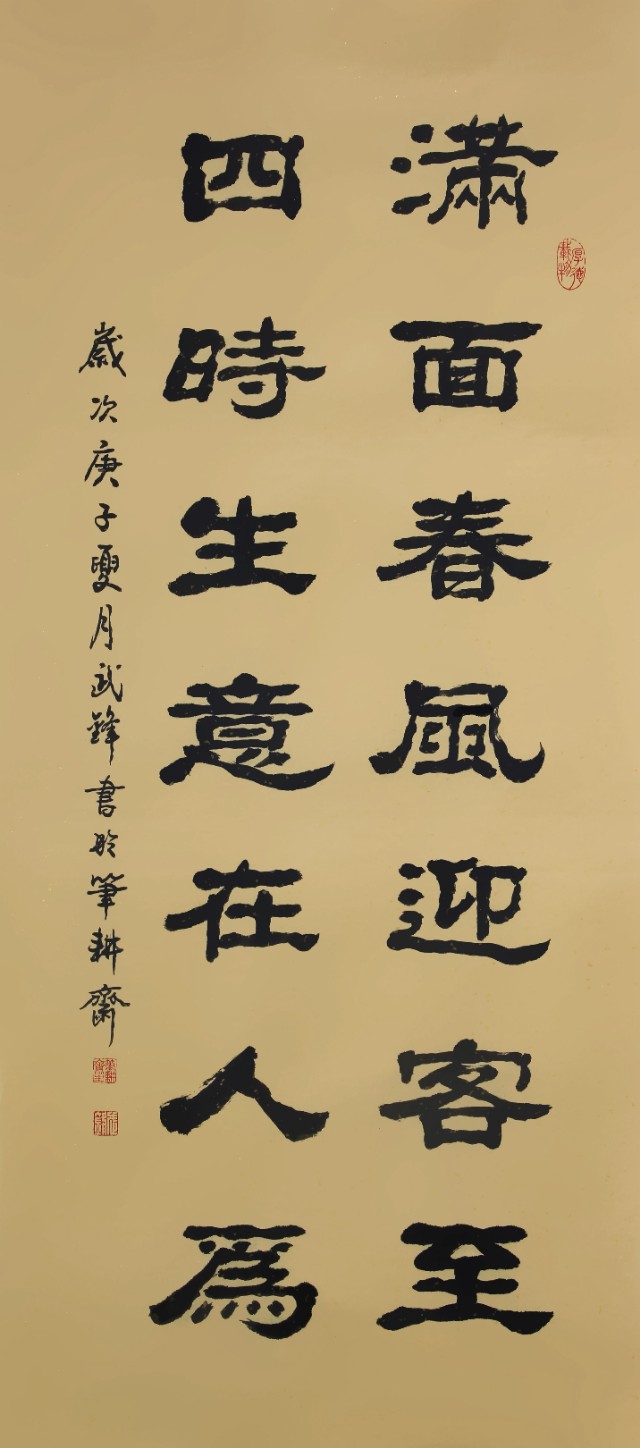 滿面春風迎客至
四時生意在人爲
歲次庚子夏月武鋒書於筆耕齋
厚德載物